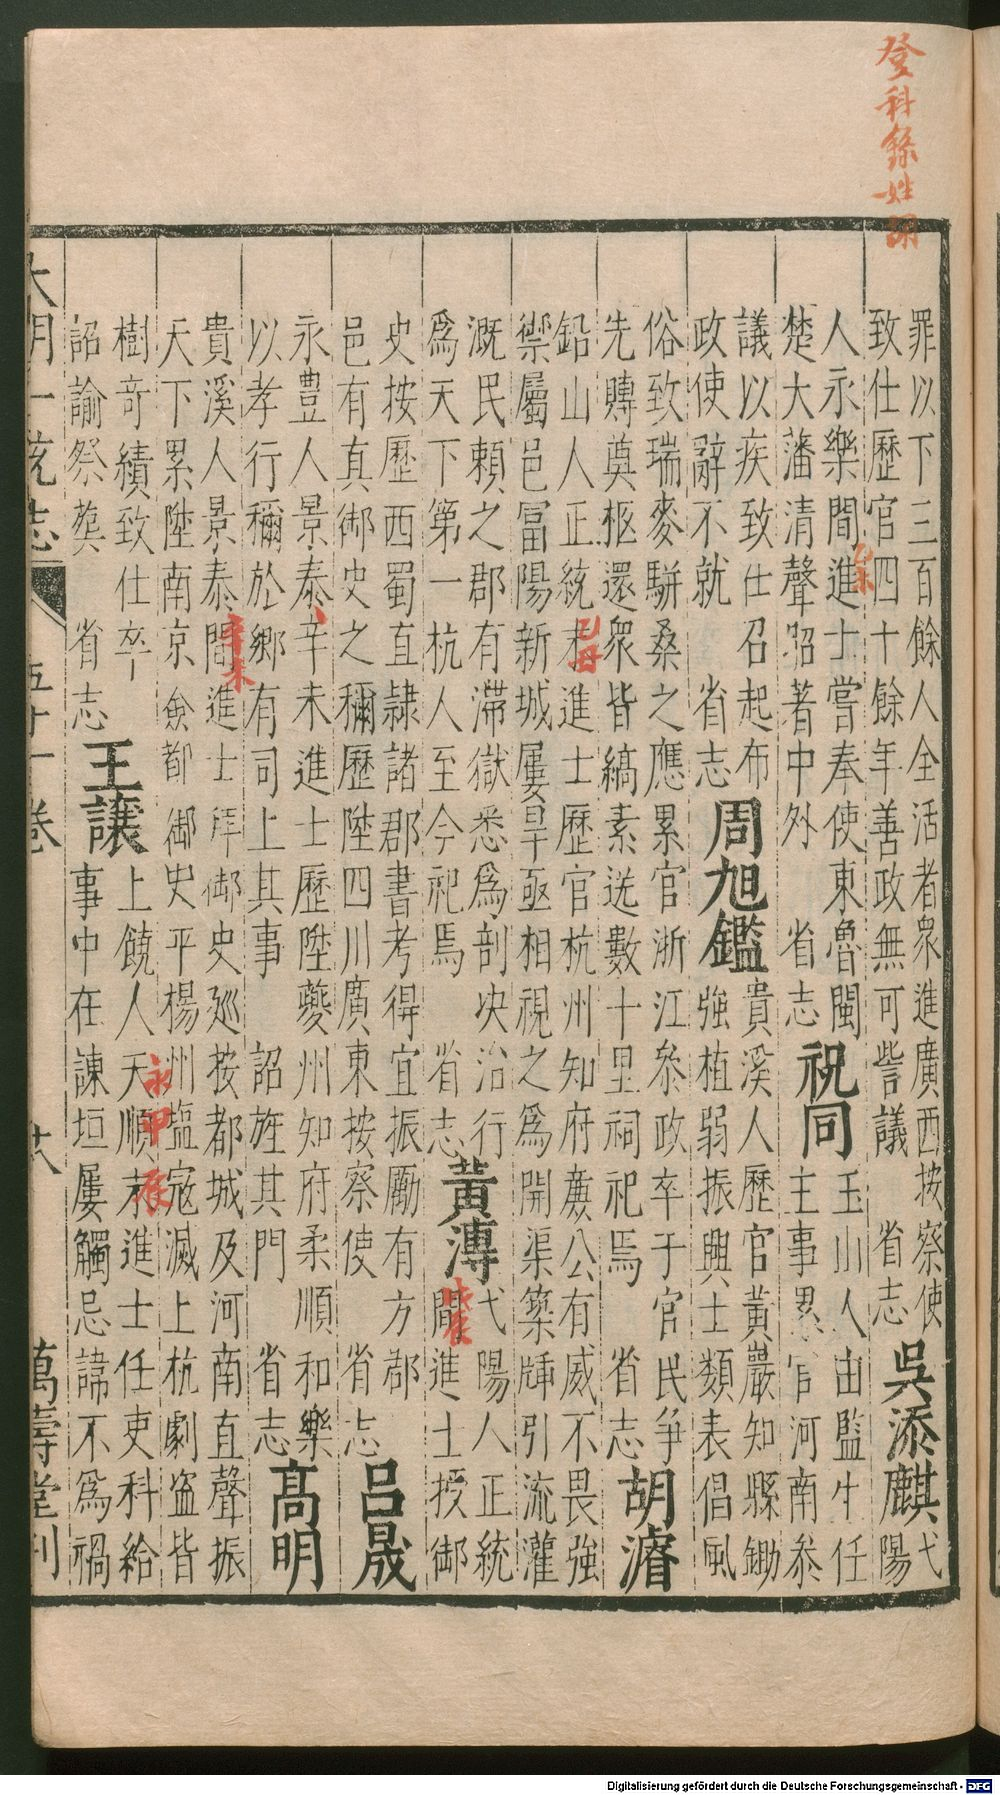 登科錄姓胡
罪以下三百餘人全活者衆進廣西按察使
致仕歷官四十餘年善政無可訾議 省志
吳添麒
弋
陽
人永樂間進士嘗奉使東魯閩
楚大藩清聲昭著中外 省志
乙未
祝同
玉山人由監生任
主事累官河南叅
議以疾致仕召起布
政使辭不就 省志
周旭鑑
貴溪人歷官黃巖知縣鋤
強植弱振興士類表倡風
俗致瑞麥駢桑之應累官浙江叅政卒于官民爭
先賻奠柩還衆皆縞素送數十里祠祀焉 省志
胡濬
鉛山人正統末進士歷官杭州知府亷公有威不畏強
禦屬邑富陽新城屢旱亟相視之爲開渠築牐引流灌
乙丑
溉民賴之郡有滯獄悉爲剖决治行
爲天下第一杭人至今祀焉 省志
黃溥
弋陽人正統
間進士授御
戊辰
史按歷西蜀直隷諸郡書考得宜振勵有方郡
邑有真御史之稱歷陞四川廣東按察使 省志
呂晟
永豊人景泰辛未進士歷陞夔州知府柔順和樂
以孝行稱於鄉有司上其事 詔旌其門 省志
高明
貴溪人景泰間進士拜御史廵按都城及河南直聲振
天下累陞南京僉都御史平楊州塩寇滅上杭劇盗皆
辛未
樹奇績致仕卒
詔諭祭塟 省志
王讓
上饒人天順末進士任吏科給
事中在諫垣屢觸忌諱不爲禍
永甲辰
大明一統志 五十一卷 廿八 萬壽堂刊
Digitalisierung gefördert durch die Deutsche Forschungsgemeinschaft - DFG